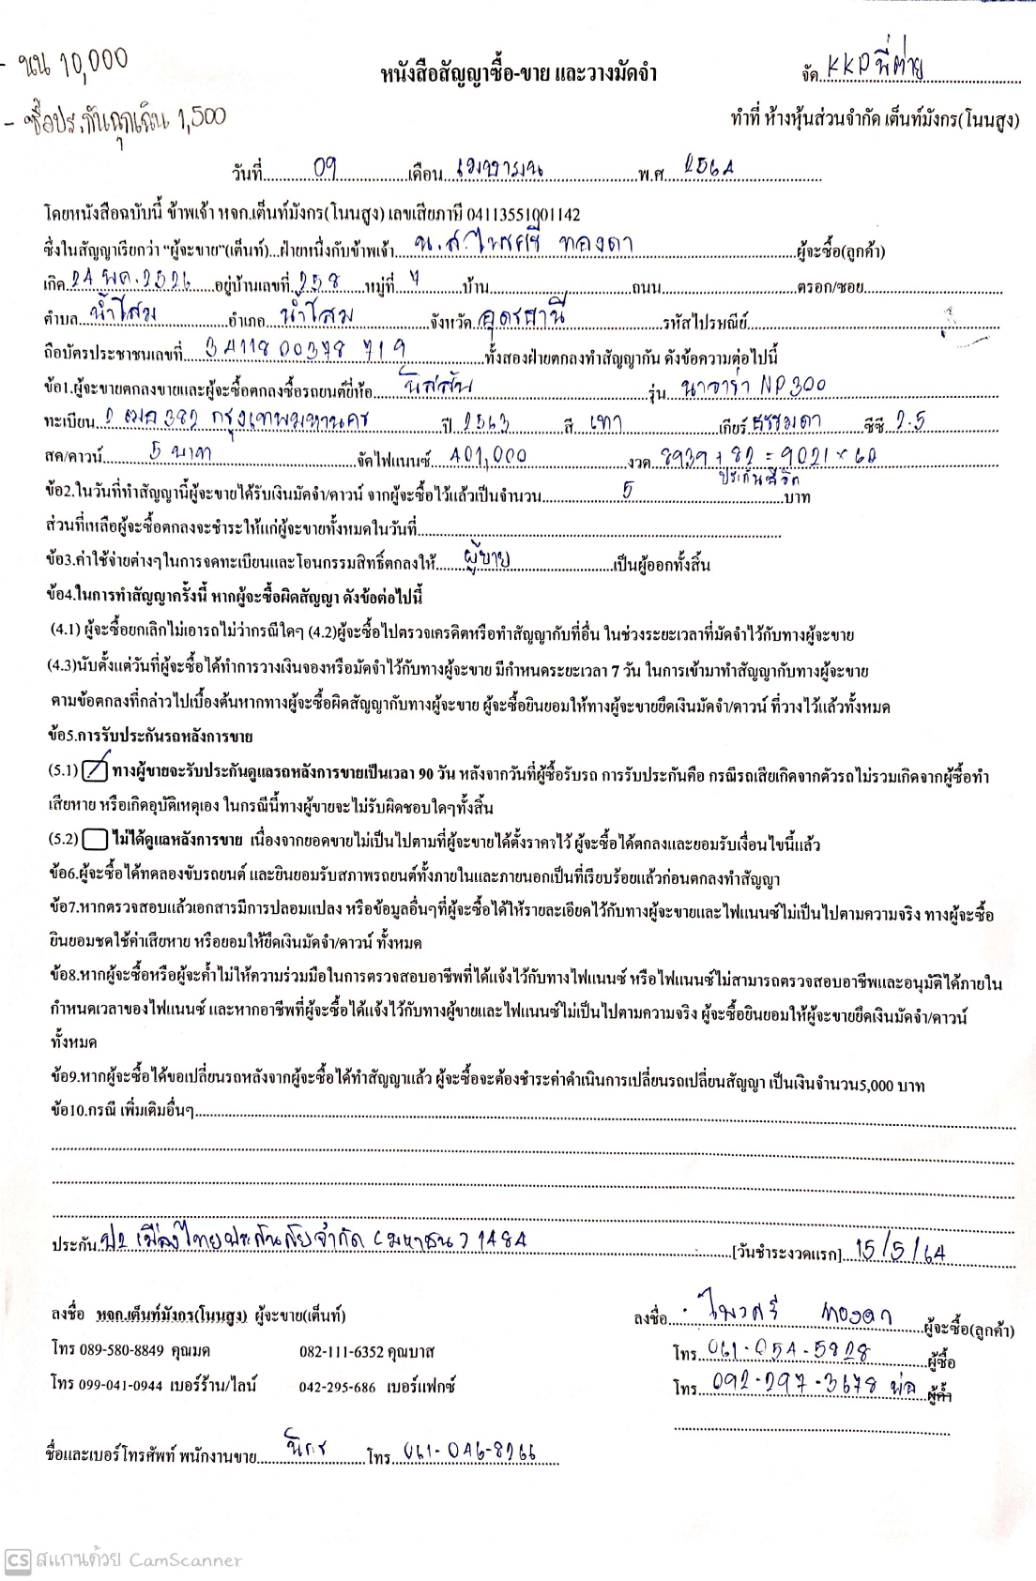 - นน 10,000
หนังสือสัญญาซื้อ-ขาย และวางมัดจำ
จัด KKP พี่ต่าย
- ซื้อประกันฉุกเฉิน 1,500
ทำที่ ห้างหุ้นส่วนจำกัด เต็นท์มังกร(โนนสูง)
วันที่ 09 เดือน เมษายน พ.ศ 2564
โดยหนังสือฉบับนี้ ข้าพเจ้า หจก.เต็นท์มังกร(โนนสูง) เลขเสียภาษี 04113551001142
ซึ่งในสัญญาเรียกว่า "ผู้จะขาย"(เต็นท์)...ฝ่ายหนึ่งกับข้าพเจ้า น.ส.ไพรศรี ทองดา ผู้จะซื้อ(ลูกค้า)
เกิด 24 พค. 2526 อยู่บ้านเลขที่ 258 หมู่ที่ 7 บ้าน ถนน ตรอก/ซอย
ตำบล น้ำโสม อำเภอ น้ำโสม จังหวัด อุดรธานี รหัสไปรษณีย์
ถือบัตรประชาชนเลขที่ 3411800378719 ทั้งสองฝ่ายตกลงทำสัญญากัน ดังข้อความต่อไปนี้
ข้อ1.ผู้จะขายตกลงขายและผู้จะซื้อตกลงซื้อรถยนต์ยี่ห้อ นิสสัน รุ่น นาวาร่า NP300
ทะเบียน 2 ฒศ 382 กรุงเทพมหานคร ปี 2563 สี เทา เกียร์ ธรรมดา ซีซี 2.5
สด/ดาวน์ 5 บาท จัดไฟแนนซ์ 401,000 งวด 8939 + 82 = 9021 x 60
ประกันชีวิต
ข้อ2.ในวันที่ทำสัญญานี้ผู้จะขายได้รับเงินมัดจำ/ดาวน์ จากผู้จะซื้อไว้แล้วเป็นจำนวน 5 บาท
ส่วนที่เหลือผู้จะซื้อตกลงจะชำระให้แก่ผู้จะขายทั้งหมดในวันที่
ข้อ3.ค่าใช้จ่ายต่างๆในการจดทะเบียนและโอนกรรมสิทธิ์ตกลงให้ ผู้ขาย เป็นผู้ออกทั้งสิ้น
ข้อ4.ในการทำสัญญาครั้งนี้ หากผู้จะซื้อผิดสัญญา ดังข้อต่อไปนี้
(4.1) ผู้จะซื้อยกเลิกไม่เอารถไม่ว่ากรณีใดๆ (4.2)ผู้จะซื้อไปตรวจเครดิตหรือทำสัญญากับที่อื่น ในช่วงระยะเวลาที่มัดจำไว้กับทางผู้จะขาย
(4.3)นับตั้งแต่วันที่ผู้จะซื้อได้ทำการวางเงินจองหรือมัดจำไว้กับทางผู้จะขาย มีกำหนดระยะเวลา 7 วัน ในการเข้ามาทำสัญญากับทางผู้จะขาย
ตามข้อตกลงที่กล่าวไปเบื้องต้นหากทางผู้จะซื้อผิดสัญญากับทางผู้จะขาย ผู้จะซื้อยินยอมให้ทางผู้จะขายยึดเงินมัดจำ/ดาวน์ ที่วางไว้แล้วทั้งหมด
ข้อ5.การรับประกันรถหลังการขาย
(5.1) ทางผู้ขายจะรับประกันดูแลรถหลังการขายเป็นเวลา 90 วัน หลังจากวันที่ผู้ซื้อรับรถ การรับประกันคือ กรณีรถเสียเกิดจากตัวรถไม่รวมเกิดจากผู้ซื้อทำ
เสียหาย หรือเกิดอุบัติเหตุเอง ในกรณีนี้ทางผู้ขายจะไม่รับผิดชอบใดๆทั้งสิ้น
(5.2) ไม่ได้ดูแลหลังการขาย เนื่องจากยอดขายไม่เป็นไปตามที่ผู้จะขายได้ตั้งราคาไว้ ผู้จะซื้อได้ตกลงและยอมรับเงื่อนไขนี้แล้ว
ข้อ6.ผู้จะซื้อได้ทดลองขับรถยนต์ และยินยอมรับสภาพรถยนต์ทั้งภายในและภายนอกเป็นที่เรียบร้อยแล้วก่อนตกลงทำสัญญา
ข้อ7.หากตรวจสอบแล้วเอกสารมีการปลอมแปลง หรือข้อมูลอื่นๆที่ผู้จะซื้อได้ให้รายละเอียดไว้กับทางผู้จะขายและไฟแนนซ์ไม่เป็นไปตามความจริง ทางผู้จะซื้อ
ยินยอมชดใช้ค่าเสียหาย หรือยอมให้ยึดเงินมัดจำ/ดาวน์ ทั้งหมด
ข้อ8.หากผู้จะซื้อหรือผู้จะค้ำไม่ให้ความร่วมมือในการตรวจสอบอาชีพที่ได้แจ้งไว้กับทางไฟแนนซ์ หรือไฟแนนซ์ไม่สามารถตรวจสอบอาชีพและอนุมัติได้ภายใน
กำหนดเวลาของไฟแนนซ์ และหากอาชีพที่ผู้จะซื้อได้แจ้งไว้กับทางผู้ขายและไฟแนนซ์ไม่เป็นไปตามความจริง ผู้จะซื้อยินยอมให้ผู้จะขายยึดเงินมัดจำ/ดาวน์
ทั้งหมด
ข้อ9.หากผู้จะซื้อได้ขอเปลี่ยนรถหลังจากผู้จะซื้อได้ทำสัญญาแล้ว ผู้จะซื้อจะต้องชำระค่าดำเนินการเปลี่ยนรถเปลี่ยนสัญญา เป็นเงินจำนวน5,000 บาท
ข้อ10.กรณี เพิ่มเติมอื่นๆ
ประกัน ป2 เมืองไทยประกันภัยจำกัด (มหาชน) 1484 [วันชำระงวดแรก] 15/5/64
ลงชื่อ หจก.เต็นท์มังกร(โนนสูง) ผู้จะขาย(เต็นท์)
ลงชื่อ ไพรศรี ทองดา ผู้จะซื้อ(ลูกค้า)
โทร 089-580-8849 คุณมด 082-111-6352 คุณบาส
โทร 061-054-5828 ผู้ซื้อ
โทร 099-041-0944 เบอร์ร้าน/ไลน์ 042-295-686 เบอร์แฟกซ์
โทร 092-297-3678 พ่อ ผู้ค้ำ
ชื่อและเบอร์โทรศัพท์ พนักงานขาย โทร 061-046-8266
CS สแกนด้วย CamScanner